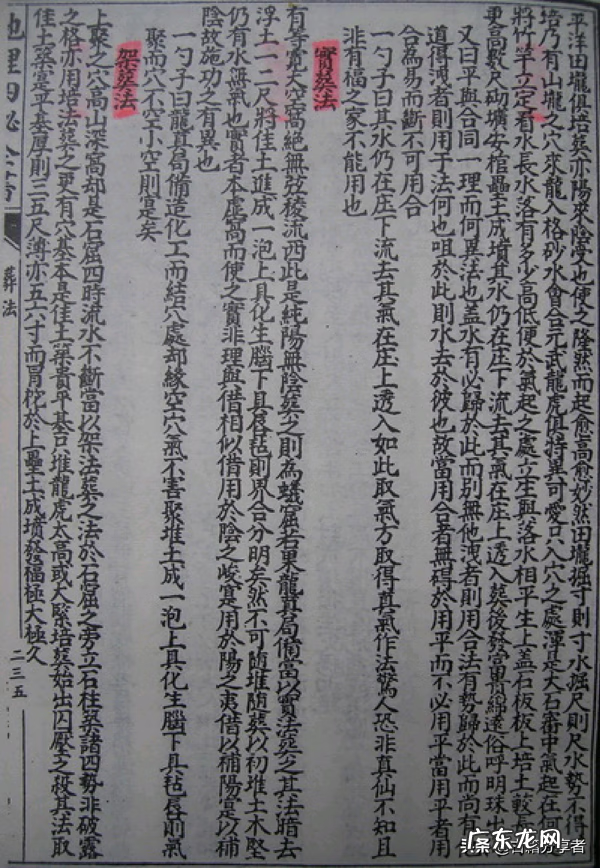 平洋田壠俱培葬亦陽來陰受也便之隆然而起愈高愈妙然田壠掘寸則寸水掘尺則尺水勢不得
培乃有山壠之穴來龍入格砂水會合元武龍虎俱特異可愛只入穴之處渾是大石審中氣起在何
將竹竿立定看水長水落有多少高低便於氣起之處立庄與落水相平生上蓋石板板上培土較長
更高數尺砌壙安棺壘土成墳其水仍在庄下流去其氣在庄上透入葬後發富貴綿遠俗呼明珠出
又曰平與合同一理而何異法也蓋水有必歸於此而別無他洩者則用合法有勢歸於此而尚有
道得洩者則用于法何也咀於此則水去於彼也故當用合者無碍於用平而不必用平當用平者用
合為易而斷不可用合
一勺子曰其水仍在庄下流去其氣在庄上透入如此取氣方取得真氣作法驚人恐非真仙不知且
非有福之家不能用也
實葬法
有等寬大空窩絕無弦稜流西此是純陽無陰葬之則為蟻窟若果龍真局備當以實法葬之其法暗去
浮土一二尺將佳土進成一泡上具化生腦下具唇毡則界合分明矣然不可隨堆隨葬以初堆土木堅
仍有水濕氣也實者本虛窩而使之實非理與借相似借用於陰之峻寔用於陽之夷借以補陽寔以補
陰故施功之有異也
一勺子曰龍真局備造化工而結穴處却緣空穴氣不害聚堆土成一泡上具化生腦下具毡唇則氣
聚而穴不空小空則寔矣
架葬法
上聚之穴高山深窩却是石窟四時流水不斷當以架法葬之法於石窟之旁立石柱葬諸四勢非破露
之格亦用培法葬之更有穴基本是佳土葬貴平基只堆龍虎太高或大緊培葬始出囚壓之殺其法取
佳土築寔平基厚則三五尺薄亦五六寸而冐挖於上壘土成墳發福極大極久
地理四秘全書
葬法
二三五
头条@古籍分享者
广东龙网